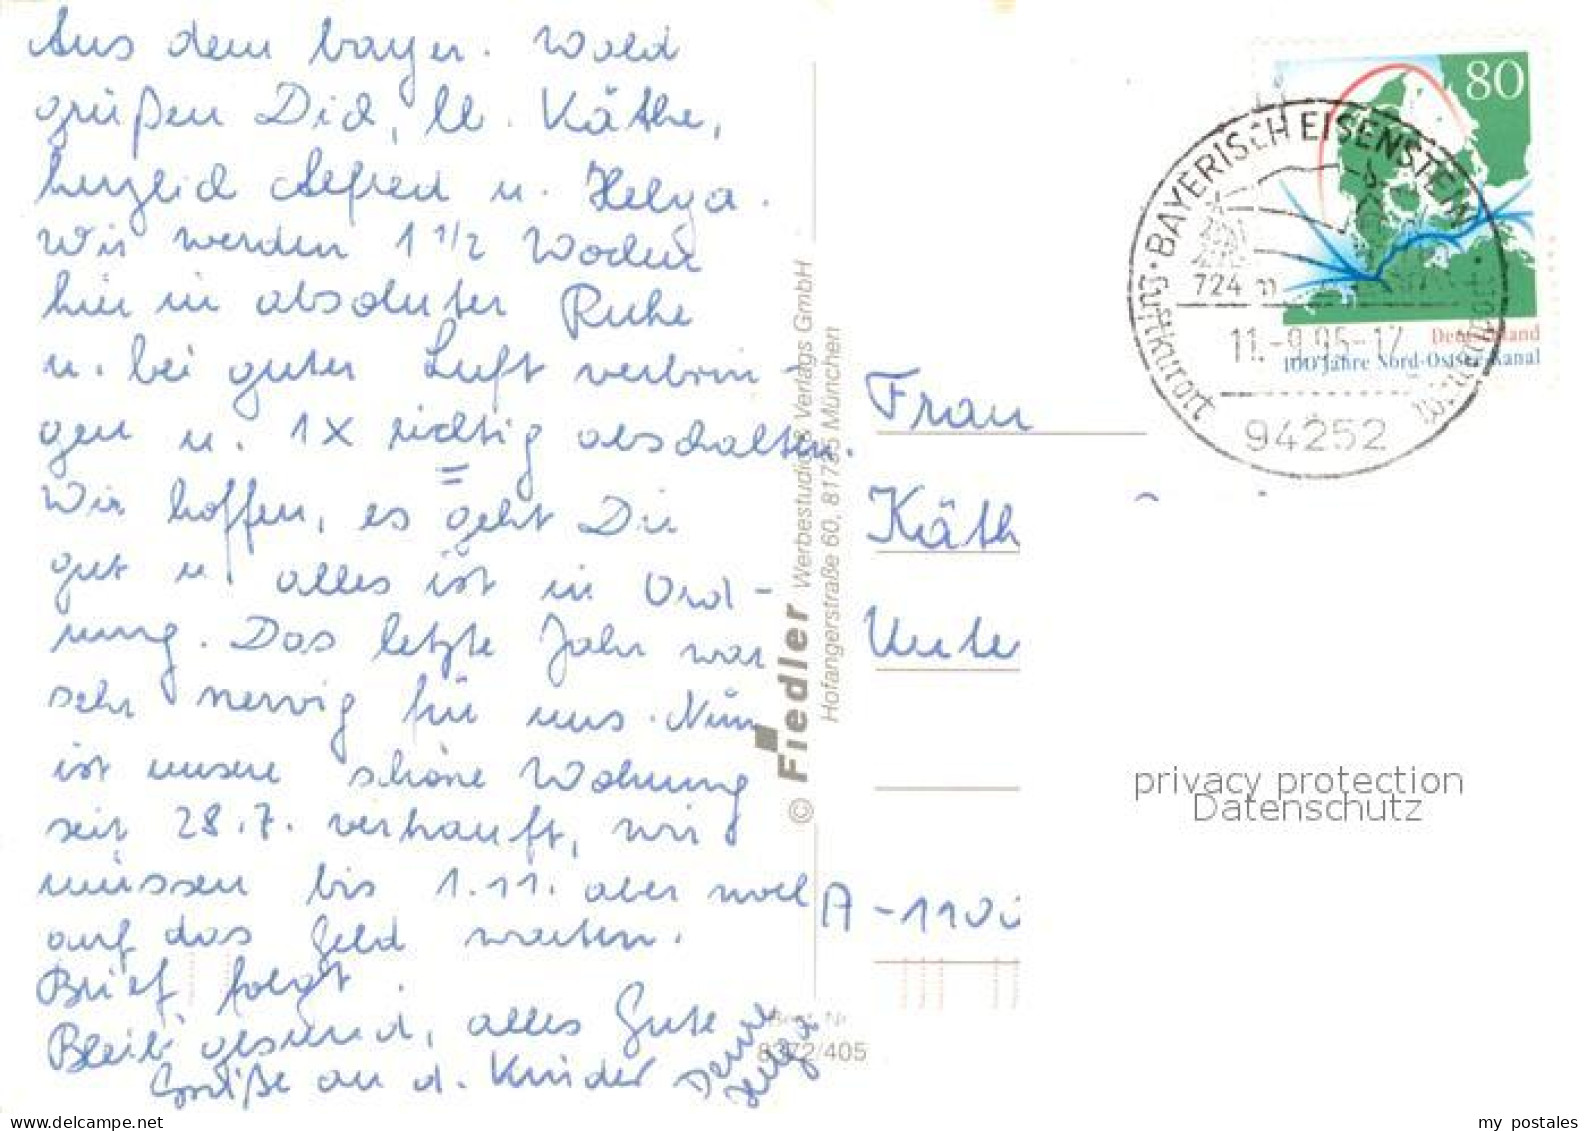 Aus dem bayer. Wald
grüßen Dich, lb. Käthe,
herzlich Alfred u. Helga.
Wir werden 1 1/2 Wochen
hier in absoluter Ruhe
u. bei guter Luft verbrin-
gen u. 1x richtig abschalten.
Wir hoffen, es geht Dir
gut u. alles ist in Ord-
nung. Das letzte Jahr war
sehr nervig für uns. Nun
ist unsere schöne Wohnung
seit 28.7. verkauft, wir
müssen bis 1.11. aber noch
auf das Geld warten.
Brief folgt.
Bleib gesund, alles Gute
Grüße an d. Kinder Deine
Helga
© Fiedler Werbestudio & Verlags GmbH
Hofangerstraße 60, 81735 München
Best. Nr.
8372/405
80
Deutschland
100 Jahre Nord-Ostsee-Kanal
BAYERISCH EISENSTEIN
Luftkurort
724 m
11.-9.95-17
94252
Frau
Käth
Unte
A-1100
privacy protection
Datenschutz
my postales